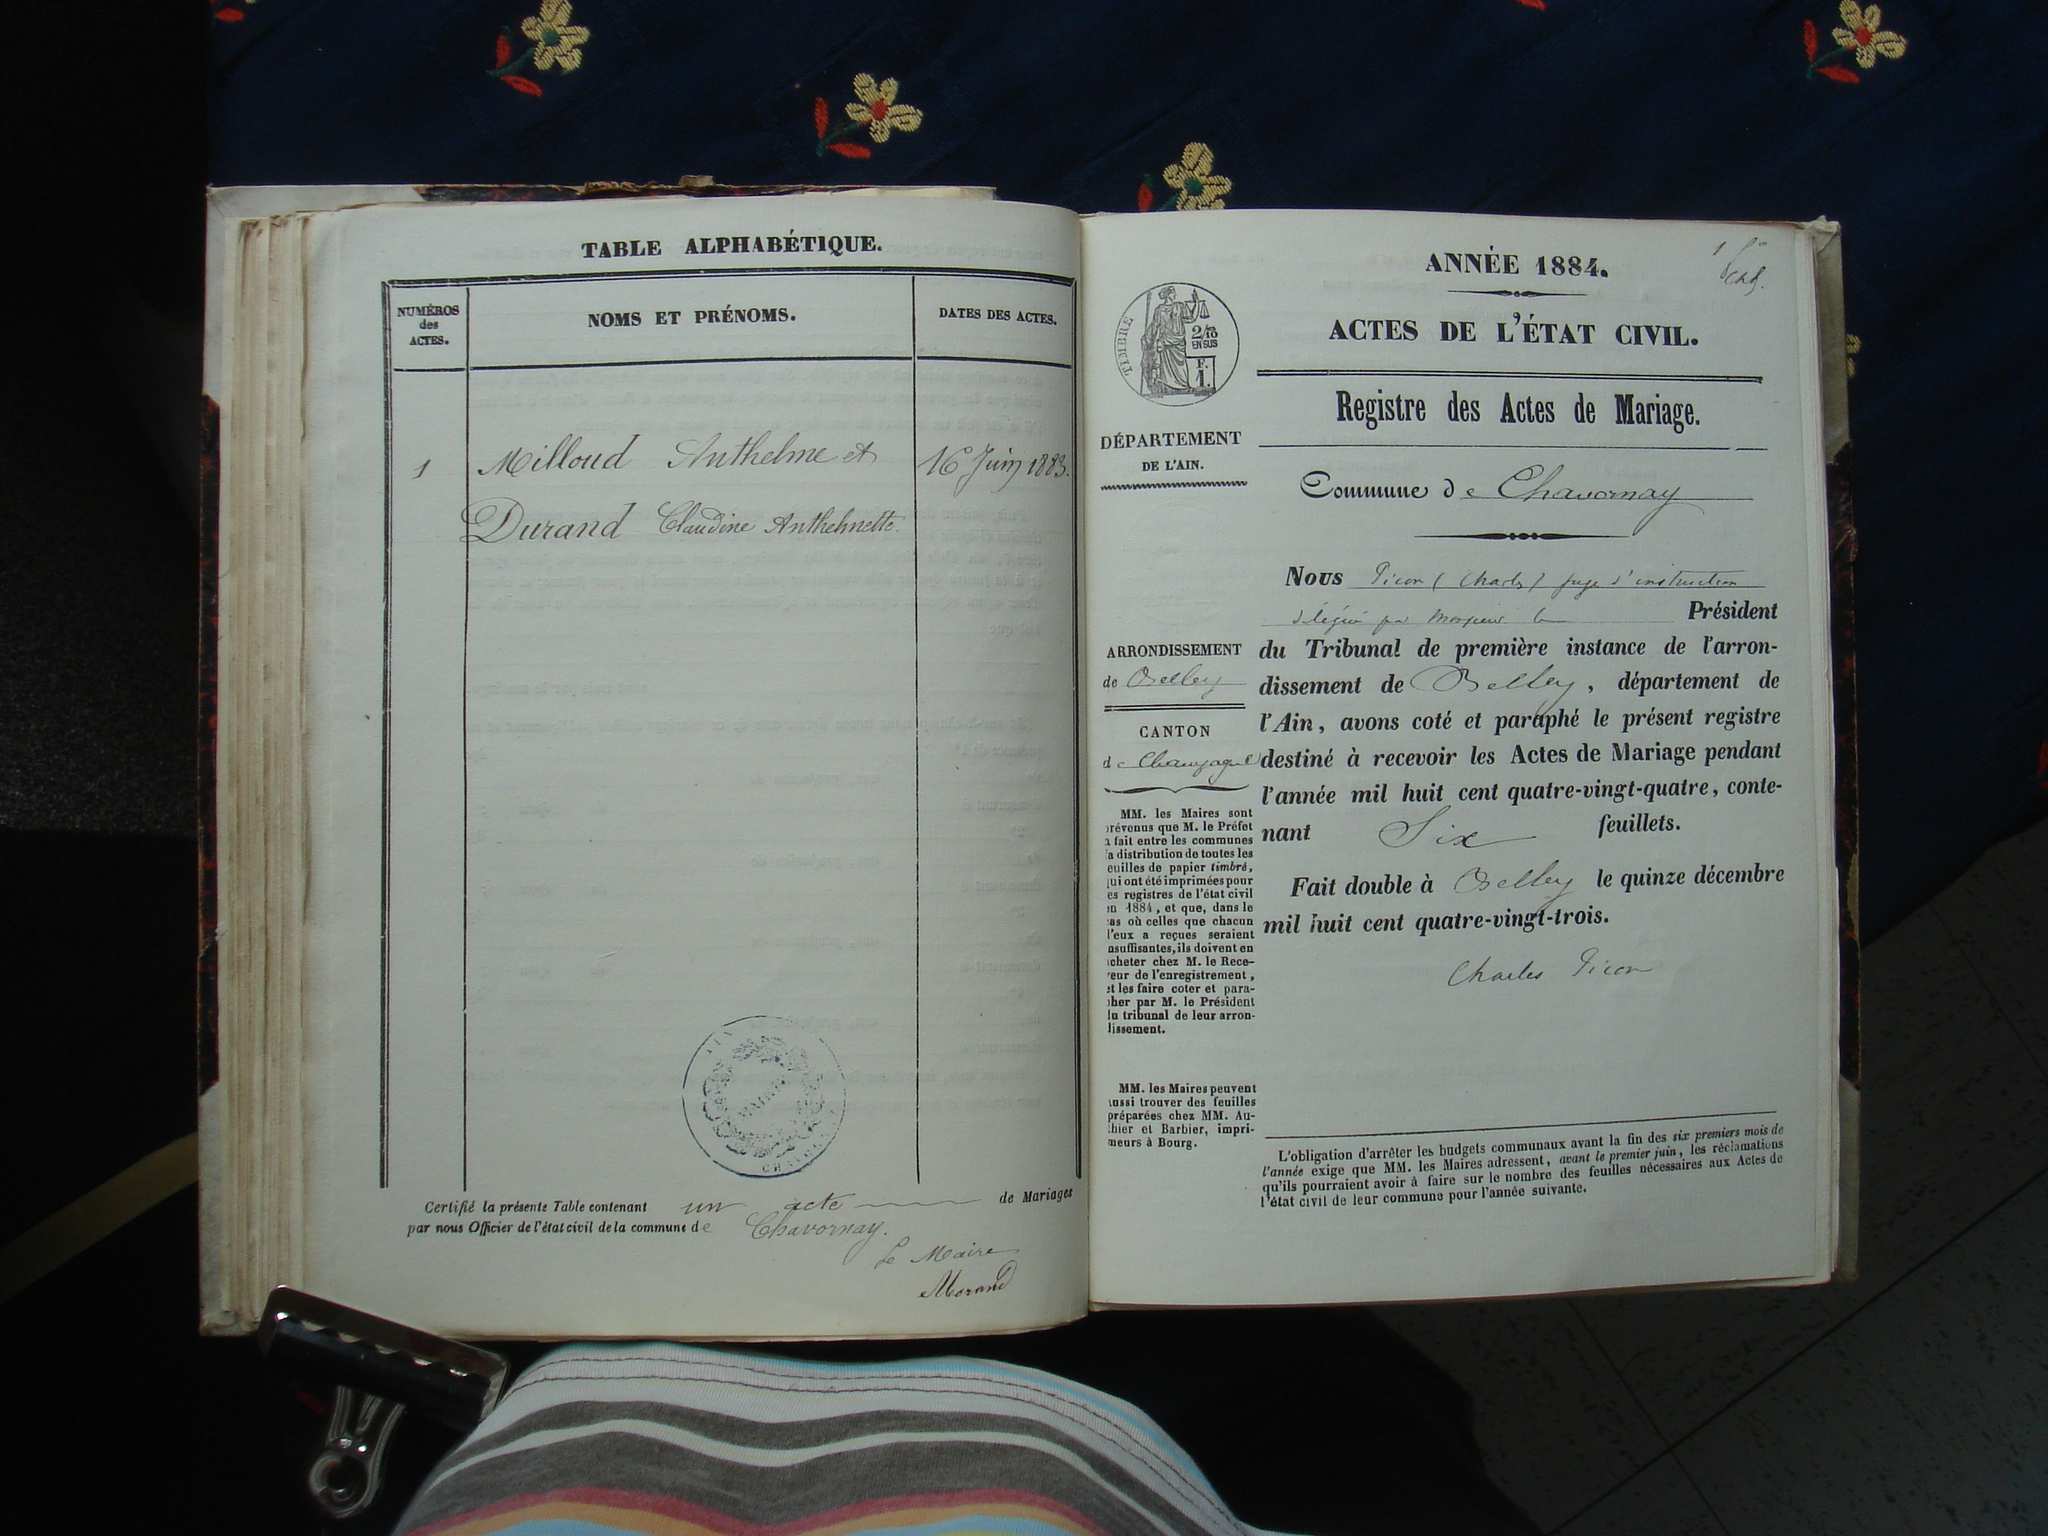 TABLE ALPHABÉTIQUE.
NUMÉROS
des
ACTES.
NOMS ET PRÉNOMS.
DATES DES ACTES.
1 Milloud Anthelme et 16 Juin 1883.
Durand Claudine Anthelmette.
Certifié la présente Table contenant un acte de Mariages
par nous Officier de l'état civil de la commune de Chavornay.
Le Maire
Morand
ANNÉE 1884.
ACTES DE L'ÉTAT CIVIL.
TIMBRE
2/10
EN SUS
F.
1.
Registre des Actes de Mariage.
DÉPARTEMENT
DE L'AIN.
Commune de Chavornay
Nous Picon (Charles) juge d'instruction
délégué par Monsieur le Président
du Tribunal de première instance de l'arron-
dissement de Belley, département de
l'Ain, avons coté et paraphé le présent registre
destiné à recevoir les Actes de Mariage pendant
l'année mil huit cent quatre-vingt-quatre, conte-
nant Six feuillets.
Fait double à Belley le quinze décembre
mil huit cent quatre-vingt-trois.
Charles Picon
ARRONDISSEMENT
de Belley
CANTON
de Champagne
MM. les Maires sont
prévenus que M. le Préfet
a fait entre les communes
la distribution de toutes les
feuilles de papier timbré,
qui ont été imprimées pour
les registres de l'état civil
en 1884, et que, dans le
cas où celles que chacun
d'eux a reçues seraient
insuffisantes, ils doivent en
acheter chez M. le Rece-
veur de l'enregistrement,
et les faire coter et para-
pher par M. le Président
du tribunal de leur arron-
dissement.
MM. les Maires peuvent
aussi trouver des feuilles
préparées chez MM. Au-
thier et Barbier, impri-
meurs à Bourg.
L'obligation d'arrêter les budgets communaux avant la fin des six premiers mois de
l'année exige que MM. les Maires adressent, avant le premier juin, les réclamations
qu'ils pourraient avoir à faire sur le nombre des feuilles nécessaires aux Actes de
l'état civil de leur commune pour l'année suivante.